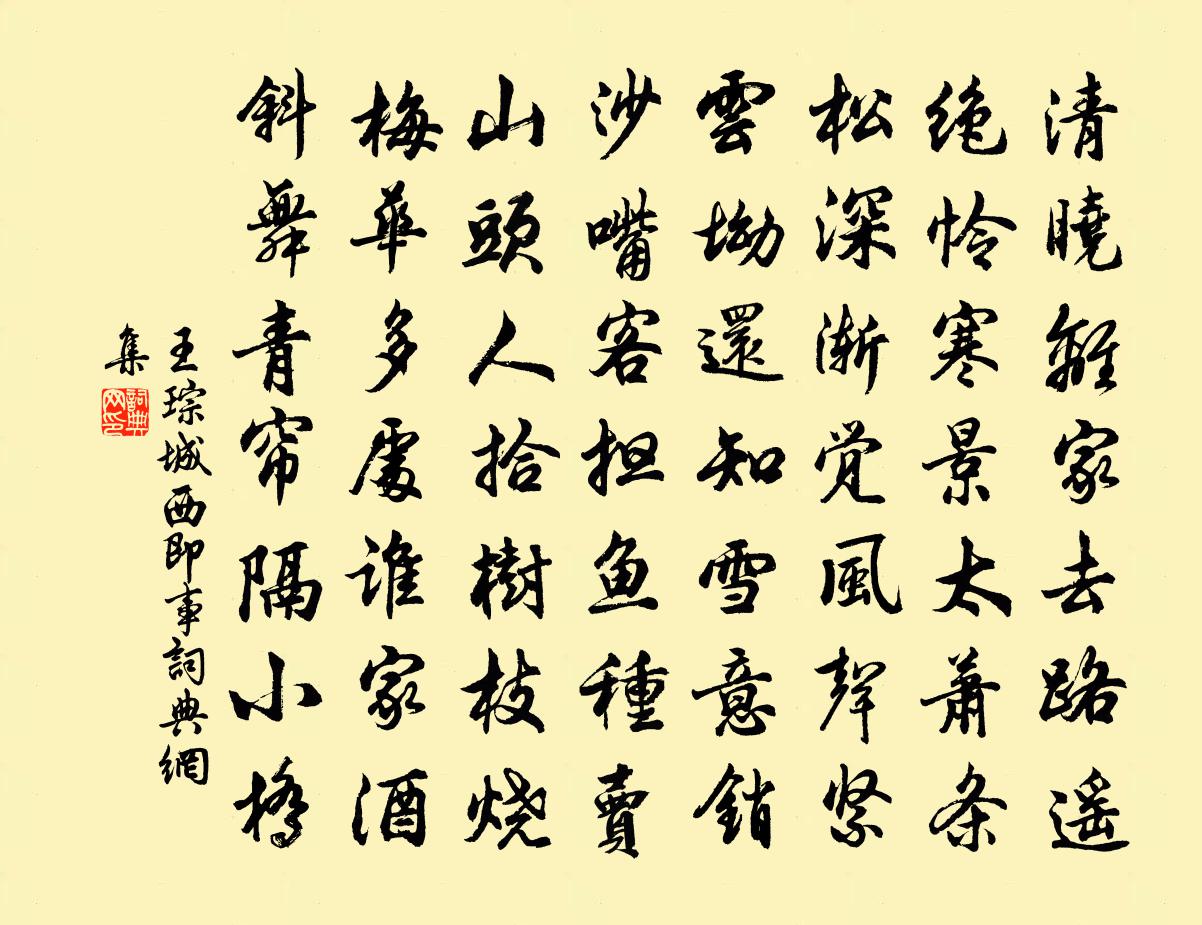 清曉離家去路遥
绝怜寒景太萧条
松深渐觉風聲紧
雲坳還知雪意銷
沙嘴客担魚種賣
山頭人拾樹枝烧
梅華多處誰家酒
斜舞青帘隔小橋
王琮城西即事詞典網
集
詞典
网印